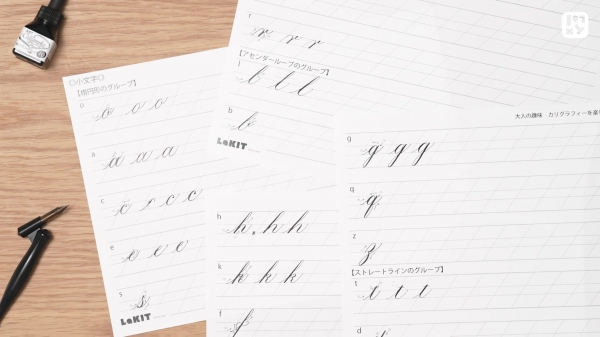 ◎小文字◎
【楕円形のグループ】
o
o o o
a
a a a
c
c c c
e
e e e
s
s
LaKIT
r
r r r
【アセンダーループのグループ】
l
l l l
b
b
LaKIT
h
h h h
k
k k k
f
f
大人の趣味　カリグラフィーを楽
g
g g g
q
q
z
z
【ストレートラインのグループ】
t
t t t
d